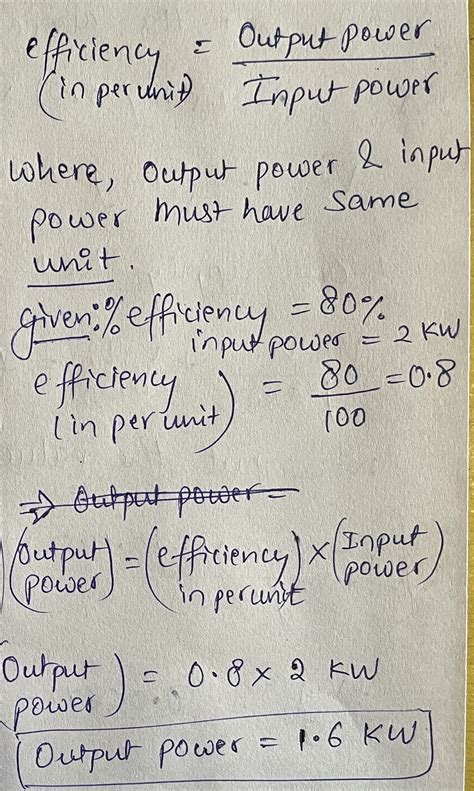 efficiency = Output power
(in per unit) Input power
where, output power & input
power must have same
unit.
given:% efficiency = 80%
input power = 2 KW
efficiency = 80 = 0.8
(in per unit) 100
⇒ Output power =
(Output power) = (efficiency in per unit) × (Input power)
Output power) = 0.8 × 2 KW
Output power = 1.6 KW